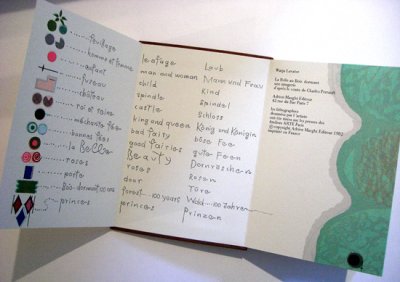 feuillage
homme et femme
enfant
fuseau
château
roi et reine
méchante fée
bonnes fées
la Belle
roses
porte
bois dormant 100 ans
princes
leafage
man and woman
child
spindle
castle
king and queen
bad fairy
good fairies
Beauty
roses
door
forest...100 years
princes
Laub
Mann und Frau
Kind
Spindel
Schloss
König und Königin
böse Fee
gute Feen
Dornröschen
Rosen
Türe
Wald...100 Jahre
Prinzen
Warja Lavater
La Belle au Bois dormant
une imagerie
d'après le conte de Charles Perrault
Adrien Maeght Editeur
42 rue du Bac Paris 7
les lithographies
dessinées par l'artiste
ont été tirées sur les presses des
Ateliers ARTE Paris
© copyright Adrien Maeght Editeur 1982
imprimé en France